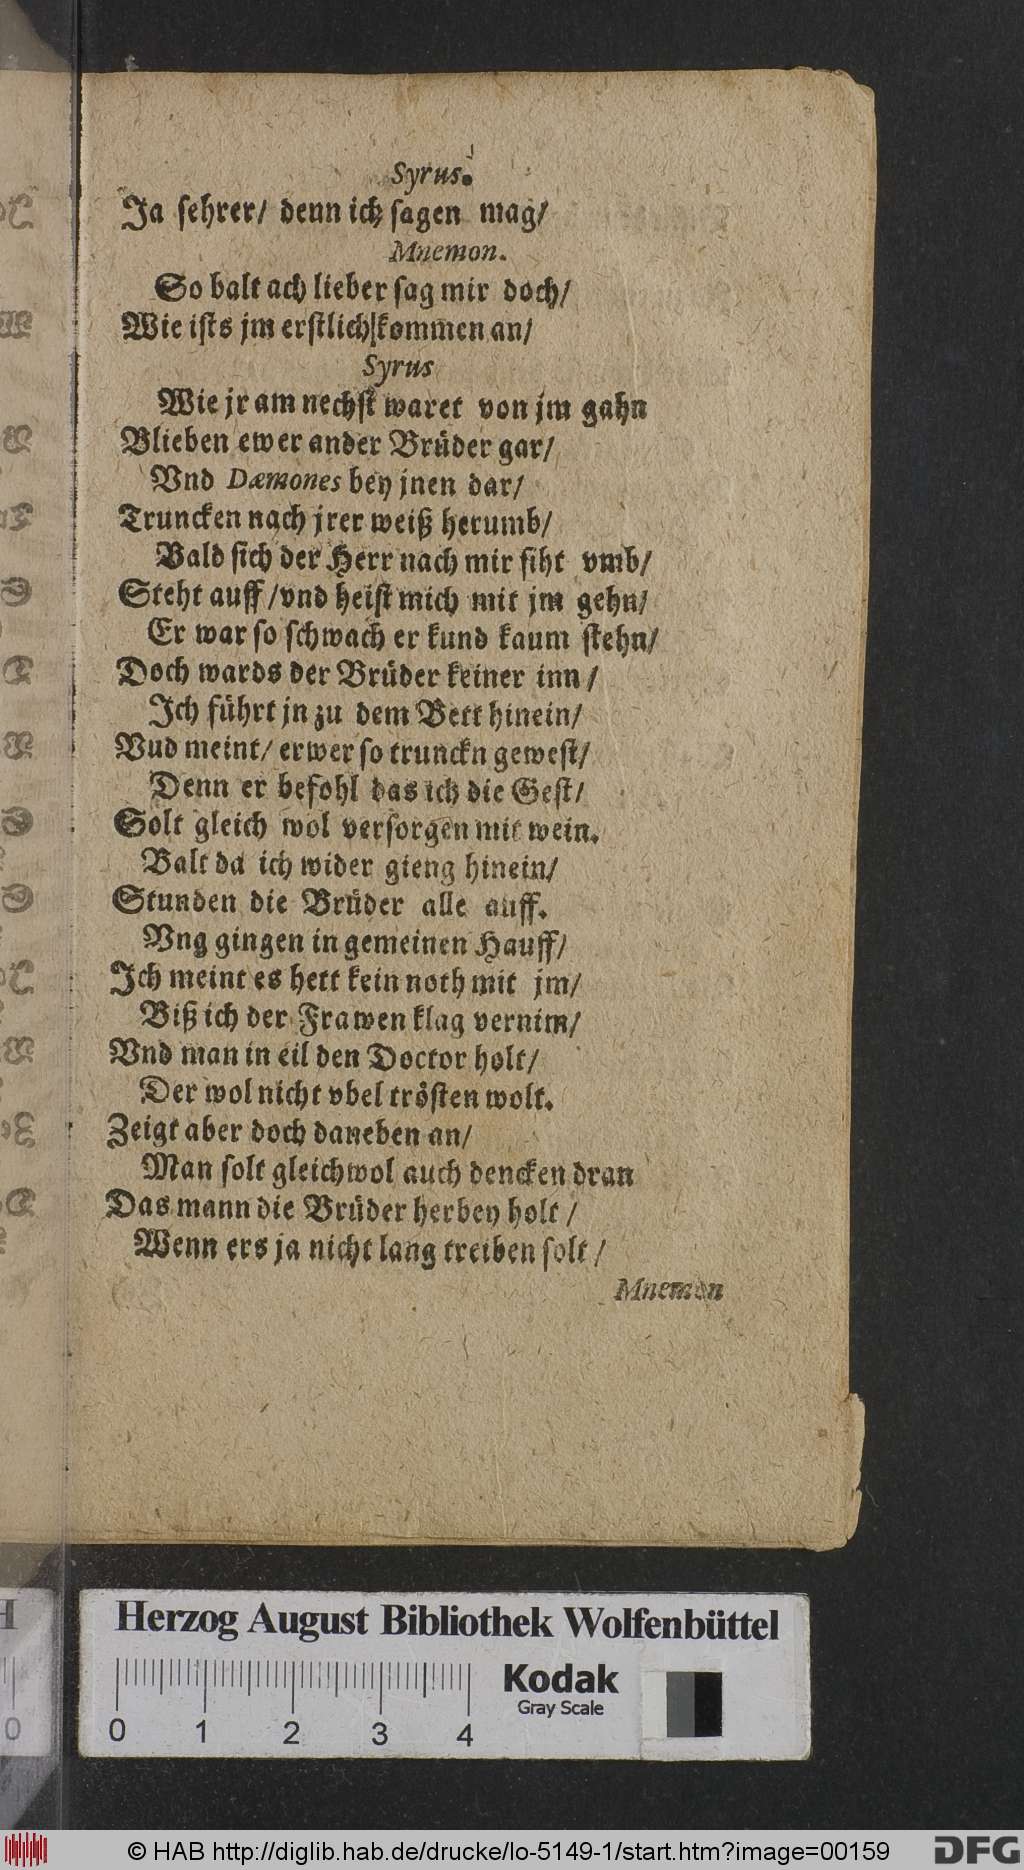 Syrus.
Ja sehrer/ denn ich sagen mag/
Mnemon.
So balt ach lieber sag mir doch/
Wie ists jm erstlich kommen an/
Syrus
Wie jr am nechst waret von jm gahn
Blieben ewer ander Brüder gar/
Vnd Dæmones bey jnen dar/
Truncken nach jrer weiß herumb/
Bald sich der Herr nach mir siht vmb/
Steht auff/vnd heist mich mit jm gehn/
Er war so schwach er kund kaum stehn/
Doch wards der Brüder keiner inn/
Ich führt jn zu dem Bett hinein/
Vud meint/ er wer so trunckn gewest/
Denn er befohl das ich die Gest/
Solt gleich wol versorgen mit wein.
Balt da ich wider gieng hinein/
Stunden die Brüder alle auff.
Vng gingen in gemeinen Hauff/
Ich meint es hett kein noth mit jm/
Biß ich der Frawen klag vernim/
Vnd man in eil den Doctor holt/
Der wol nicht vbel trösten wolt.
Zeigt aber doch daneben an/
Man solt gleichwol auch dencken dran
Das mann die Brüder herbey holt/
Wenn ers ja nicht lang treiben solt/
Mnemon
Herzog August Bibliothek Wolfenbüttel
Kodak
Gray Scale
0 1 2 3 4
© HAB http://diglib.hab.de/drucke/lo-5149-1/start.htm?image=00159
DFG